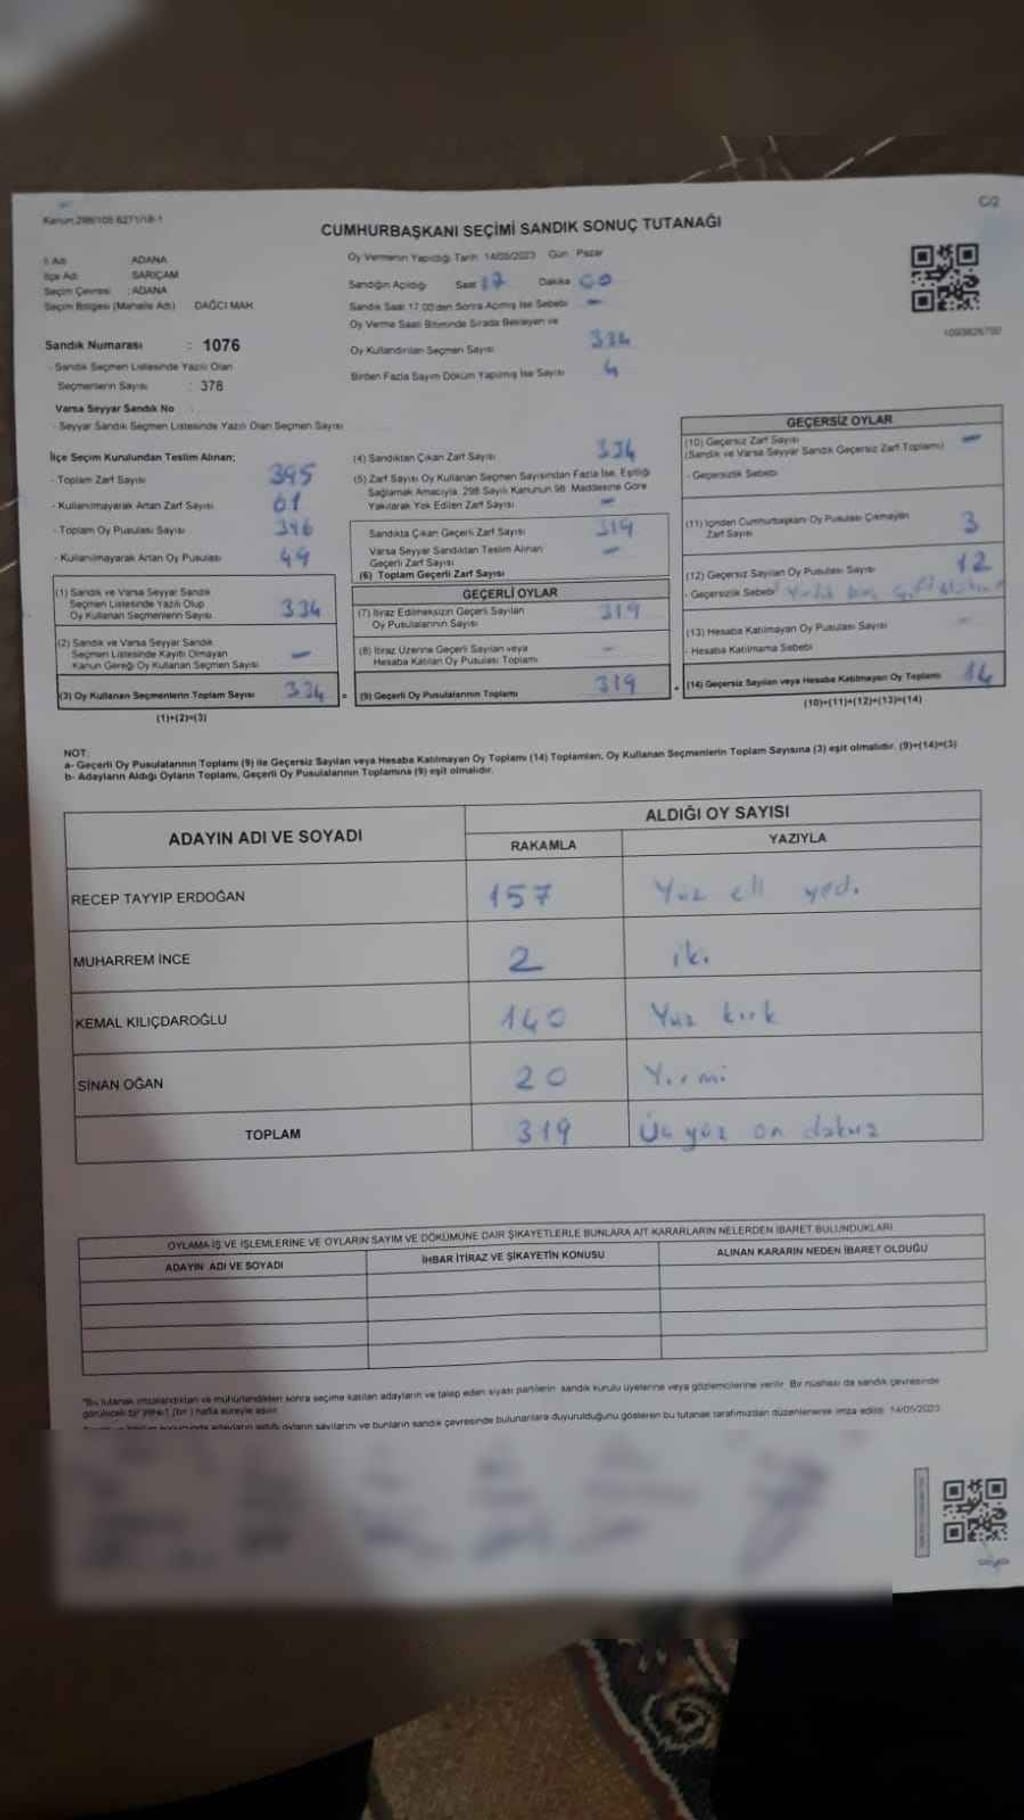 Kanun 298/105 6271/18-1
C/2
CUMHURBAŞKANI SEÇİMİ SANDIK SONUÇ TUTANAĞI
İl Adı ADANA
İlçe Adı SARIÇAM
Seçim Çevresi : ADANA
Seçim Bölgesi (Mahalle Adı) DAĞCI MAH.
Sandık Numarası : 1076
- Sandık Seçmen Listesinde Yazılı Olan
Seçmenlerin Sayısı : 378
Varsa Seyyar Sandık No
- Seyyar Sandık Seçmen Listesinde Yazılı Olan Seçmen Sayısı
Oy Vermenin Yapıldığı Tarih 14/05/2023 Gün Pazar
Sandığın Açıldığı Saat 17 Dakika 00
Sandık Saat 17.00'den Sonra Açılmış İse Sebebi -
Oy Verme Saati Bitiminde Sırada Bekleyen ve
Oy Kullandırılan Seçmen Sayısı 334
Birden Fazla Sayım Döküm Yapılmış İse Sayısı 4
İlçe Seçim Kurulundan Teslim Alınan;
- Toplam Zarf Sayısı 395
- Kullanılmayarak Artan Zarf Sayısı 61
- Toplam Oy Pusulası Sayısı
- Kullanılmayarak Artan Oy Pusulası 49
(1) Sandık ve Varsa Seyyar Sandık
Seçmen Listesinde Yazılı Olup
Oy Kullanan Seçmenlerin Sayısı 334
(2) Sandık ve Varsa Seyyar Sandık
Seçmen Listesinde Kayıtlı Olmayan
Kanun Gereği Oy Kullanan Seçmen Sayısı -
(3) Oy Kullanan Seçmenlerin Toplam Sayısı 334 =
(1)+(2)=(3)
(4) Sandıktan Çıkan Zarf Sayısı 334
(5) Zarf Sayısı Oy Kullanan Seçmen Sayısından Fazla İse, Eşitliği
Sağlamak Amacıyla, 298 Sayılı Kanunun 98. Maddesine Göre
Yakılarak Yok Edilen Zarf Sayısı -
Sandıkta Çıkan Geçerli Zarf Sayısı 319
Varsa Seyyar Sandıktan Teslim Alınan
Geçerli Zarf Sayısı -
(6) Toplam Geçerli Zarf Sayısı
GEÇERLİ OYLAR
(7) İtiraz Edilmeksizin Geçerli Sayılan
Oy Pusulalarının Sayısı 319
(8) İtiraz Üzerine Geçerli Sayılan veya
Hesaba Katılan Oy Pusulası Toplamı -
(9) Geçerli Oy Pusulalarının Toplamı 319 +
GEÇERSİZ OYLAR
(10) Geçersiz Zarf Sayısı
(Sandık ve Varsa Seyyar Sandık Geçersiz Zarf Toplamı) -
- Geçersizlik Sebebi
(11) İçinden Cumhurbaşkanı Oy Pusulası Çıkmayan
Zarf Sayısı 3
(12) Geçersiz Sayılan Oy Pusulası Sayısı 12
- Geçersizlik Sebebi
(13) Hesaba Katılmayan Oy Pusulası Sayısı -
- Hesaba Katılmama Sebebi
(14) Geçersiz Sayılan veya Hesaba Katılmayan Oy Toplamı 14
(10)+(11)+(12)+(13)=(14)
NOT:
a- Geçerli Oy Pusulalarının Toplamı (9) ile Geçersiz Sayılan veya Hesaba Katılmayan Oy Toplamı (14) Toplamları, Oy Kullanan Seçmenlerin Toplam Sayısına (3) eşit olmalıdır. (9)+(14)=(3)
b- Adayların Aldığı Oyların Toplamı, Geçerli Oy Pusulalarının Toplamına (9) eşit olmalıdır.
ADAYIN ADI VE SOYADI
ALDIĞI OY SAYISI
RAKAMLA YAZIYLA
RECEP TAYYIP ERDOĞAN 157 Yüz elli yedi
MUHARREM İNCE 2 iki
KEMAL KILIÇDAROĞLU 140 Yüz kırk
SİNAN OĞAN 20 Yirmi
TOPLAM 319 Üç yüz on dokuz
OYLAMA İŞ VE İŞLEMLERİNE VE OYLARIN SAYIM VE DÖKÜMÜNE DAİR ŞİKAYETLERLE BUNLARA AİT KARARLARIN NELERDEN İBARET BULUNDUKLARI
ADAYIN ADI VE SOYADI İHBAR İTİRAZ VE ŞİKAYETİN KONUSU ALINAN KARARIN NEDEN İBARET OLDUĞU
"Bu tutanak imzalandıktan ve mühürlendikten sonra seçime katılan adayların ve talep eden siyasi partilerin sandık kurulu üyelerine veya gözlemcilerine verilir. Bir nüshası da sandık çevresinde
görülecek bir yere 1 (bir) hafta süreyle asılır.
adayların aldığı oyların sayılarını ve bunların sandık çevresinde bulunanlara duyurulduğunu gösteren bu tutanak tarafımızdan düzenlenerek imza edildi. 14/05/2023